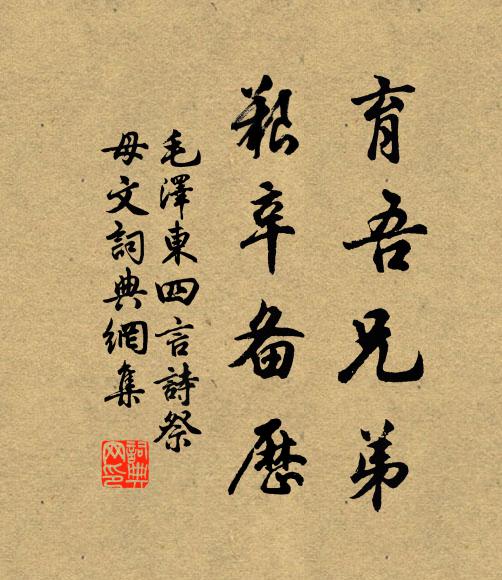 育吾兄弟
艰辛备历
毛澤東四言詩祭
母文詞典網集
詞典
网印